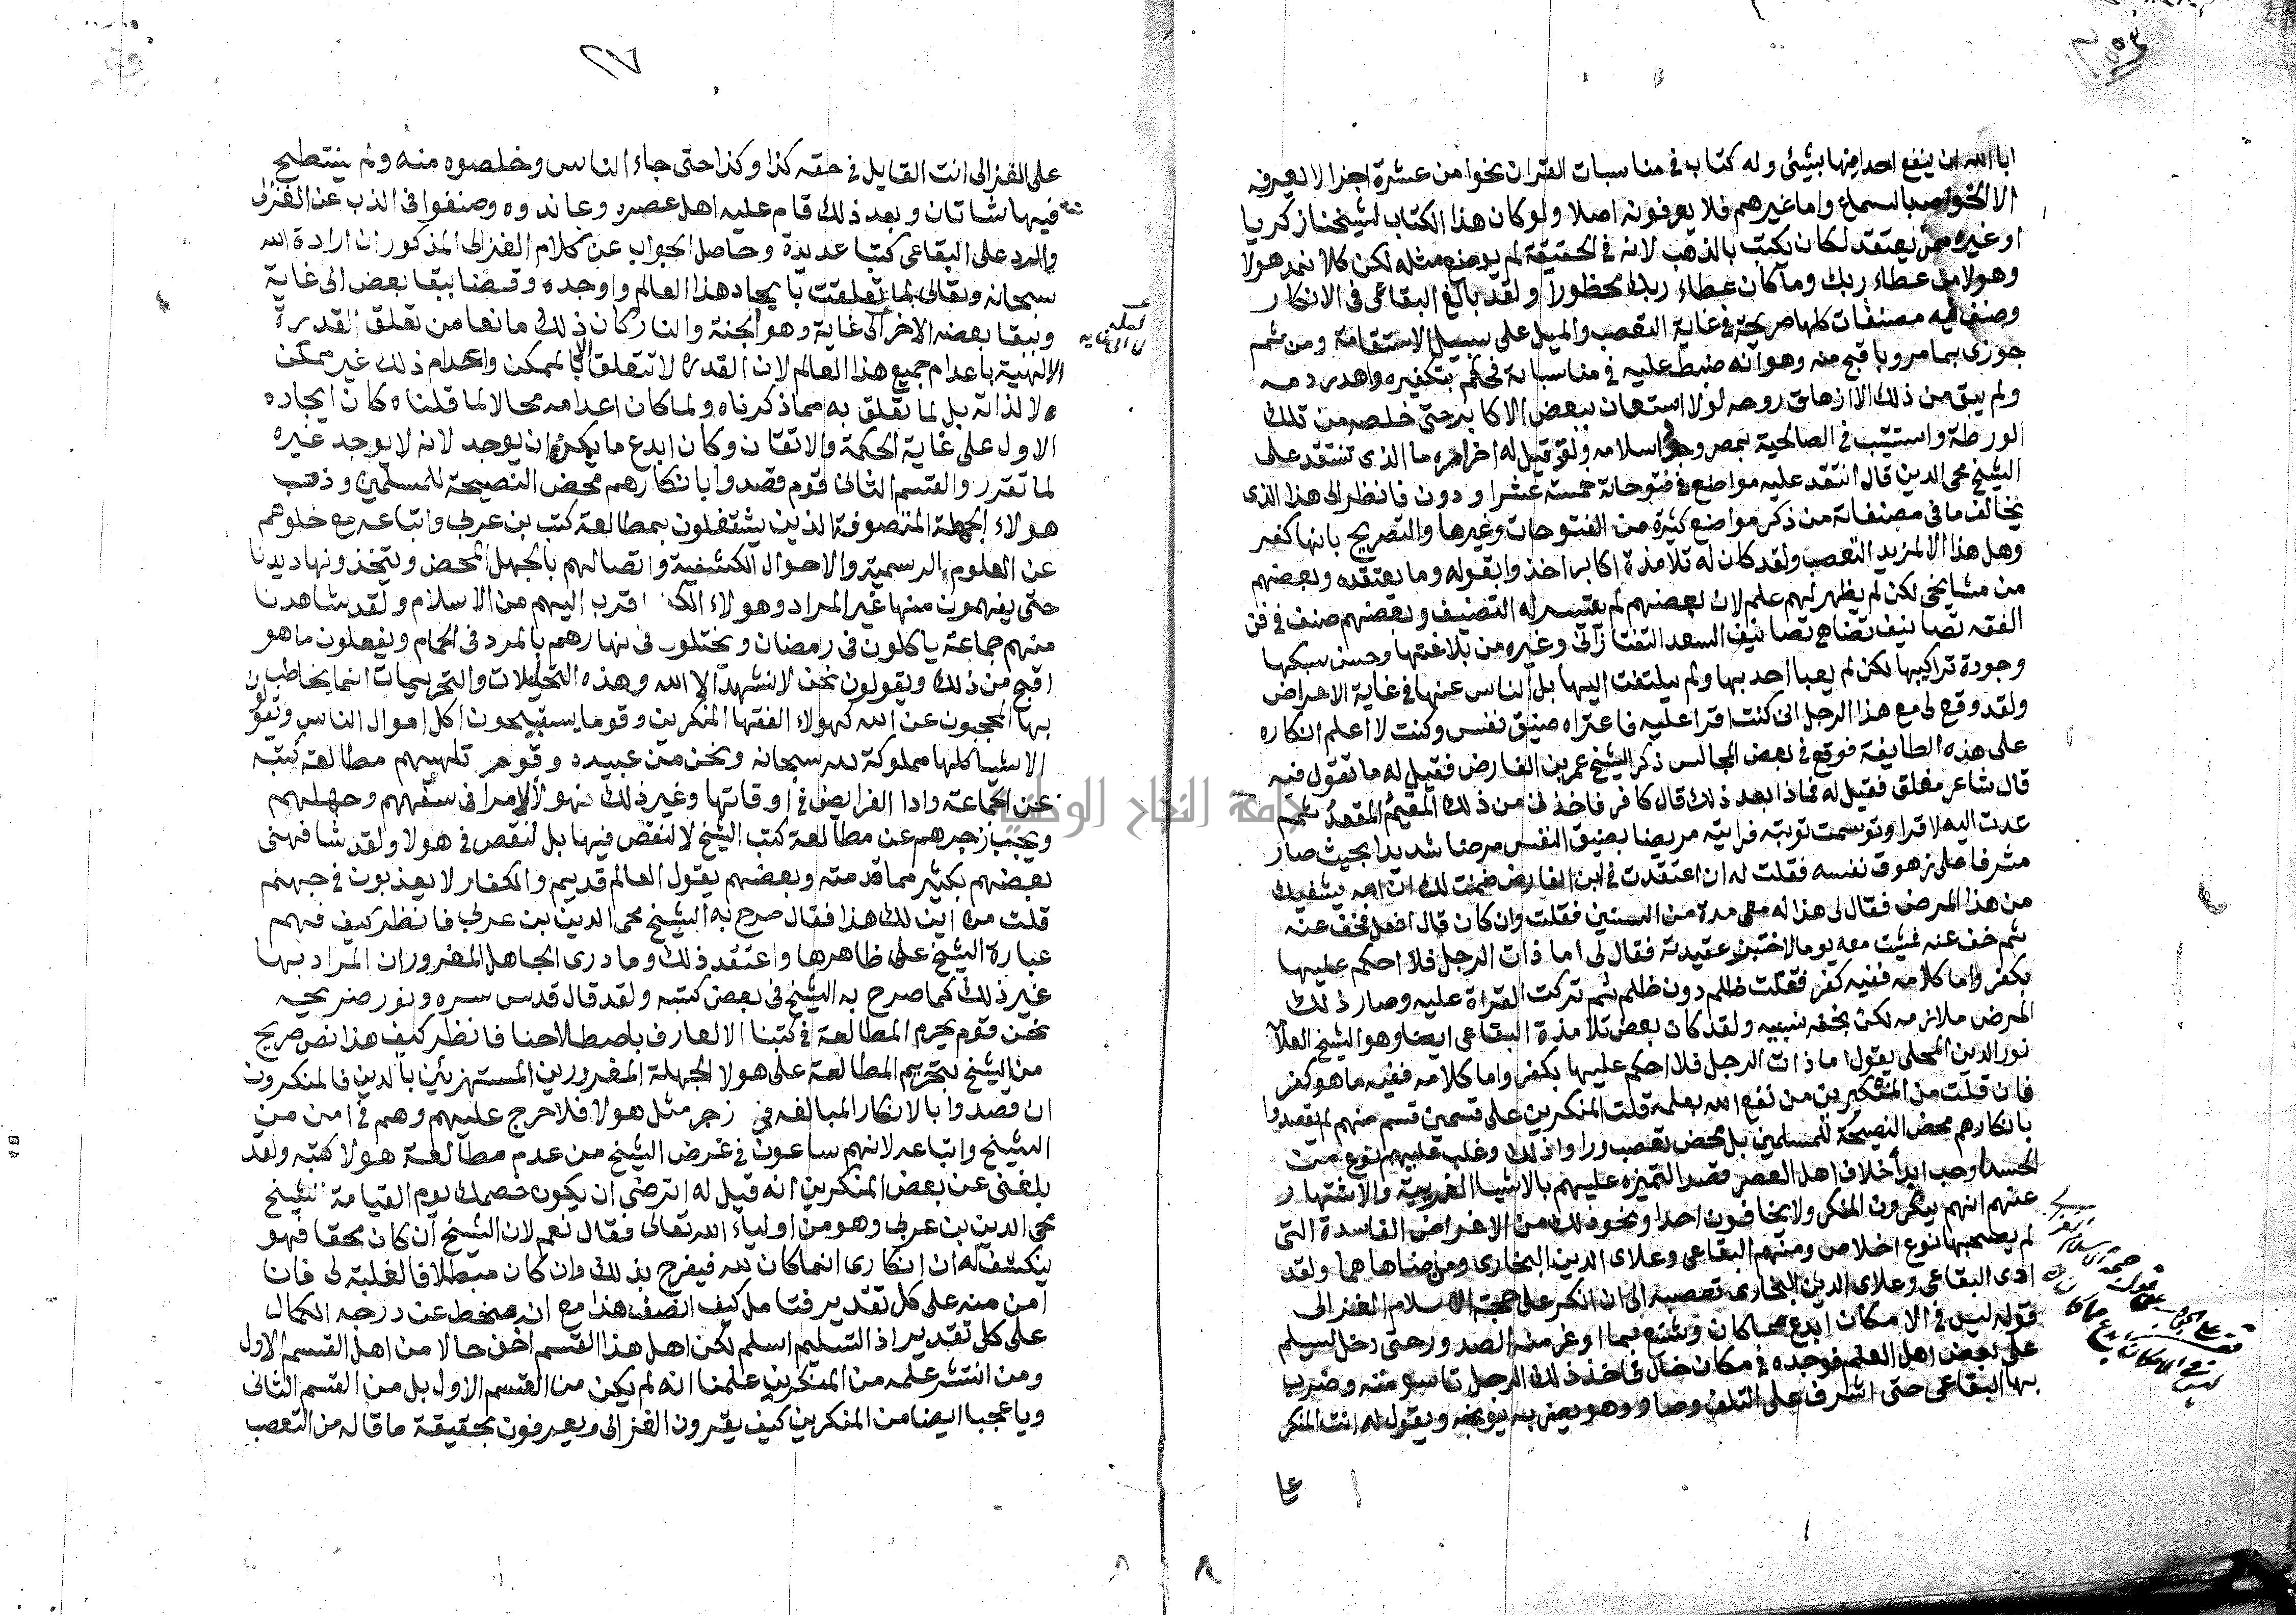 ابا الله ان ينفع احدا منها بشيئ وله كتاب في مناسبات القران نحوا من عشرة اجزا لا يعرفه
الا الخواص بالسماع واما غيرهم فلا يعرفونه اصلا ولو كان هذا الكتاب لشيخنا زكريا
او غيره ممن يعتقد لكان يكتب بالذهب لانه في الحقيقة لم يوضع مثله لكن كلا نمد هولا
وهولا من عطاء ربك وما كان عطاء ربك محظورا ولقد بالغ البقاعي في الانكار
وصنف فيه مصنفات كلها صريحة في غاية التعصب والميل على سبيل الاستقامة ومن ثم
جوزى بما مر وباقبح منه وهو انه ضبط عليه في مناسباته فحكم بتكفيره واهدر دمه
ولم يبق من ذلك الا ازهاق روحه لولا استعان ببعض الاكابر حتى خلصه من تلك
الورطة واستتيب في الصالحية بمصر وجدد اسلامه ولقد قيل له اخر امره ما الذى تنتقد على
الشيخ محى الدين قال انتقد عليه مواضع في فتوحاته خمسة عشر او دون فانظر الى هذا الذى
يخالف ما فى مصنفاته من ذكر مواضع كثيرة من الفتوحات وغيرها والتصريح بانها كفر
وهل هذا الا لمزيد التعصب ولقد كان له تلامذة اكابر اخذوا بقوله وما يعتقده وبعضهم
من مشايخى لكن لم يظهر لهم علم لان بعضهم لم يتيسر له التصنيف وبعضهم صنف في فن
الفقه تصانيف تضاهى تصانيف السعد التفتازاني وغيره من بلاغتها وحسن سبكها
وجودة تراكيبها لكن لم يعبا احد بها ولم يلتفت اليها بل الناس عنها في غاية الاعراض
ولقد وقع لى مع هذا الرجل انى كنت اقرا عليه فاعتراه ضيق نفس وكنت لا اعلم انكاره
على هذه الطايفة فوقع في بعض المجالس ذكر الشيخ عمر بن الفارض فقيل له ما تقول فيه
قال شاعر مفلق فقيل له فماذا بعد ذلك قال كافر فاخذني من ذلك المقيم المقعد ثم
عدت اليه لاقرا وتوسمت توبته فرايته مريضا بضيق النفس مرضا شديدا بحيث صار
مشرفا على زهوق نفسه فقلت له ان اعتقدت في ابن الفارض ضمنت لك ان الله يشفيك
من هذا المرض فقال لى هذا له معى مدة من السنين فقلت وان كان قال افعل فخف عنه
ثم خف عنه فمشيت معه يوما لاختبر عقيدته فقال لى اما ذات الرجل فلا احكم عليها
بكفر واما كلامه ففيه كفر فقلت ظلم دون ظلم ثم تركت القراة عليه وصار ذلك
المرض ملازمه لكن بخفه نسبيه ولقد كان بعض تلامذة البقاعى ايضا وهو الشيخ العلا
نور الدين المحلى يقول اما ذات الرجل فلا احكم عليها بكفر واما كلامه ففيه ما هو كفر
فان قلت من المنكرين من نفع الله بعلمه قلت المنكرين على قسمين قسم منهم لم يقصدوا
بانكارهم محض النصيحة للمسلمين بل محض تعصب وراوا ذلك وغلب عليهم نوع من
الحسد وحب ابدأ خلاف اهل العصر قصد التميزه عليهم بالاشيا الغريبة والاشتهار
عنهم انهم ينكرون المنكر ولا يخافون احدا ونحو ذلك من الاغراض الفاسدة التى
لم يصحبها نوع اخلاص ومنهم البقاعى وعلاى الدين البخارى ومن ضاهاهما ولقد
ادى البقاعى وعلاى الدين البخارى تعصبه الى ان انكر على حجة الاسلام الغزالى
قوله ليس في الامكان ابدع مما كان وشنع بما اوغر منه الصدور حتى دخل ليسلم
على بعض اهل العلم فوجده في مكان خال فاخذ ذلك الرجل تاسومته وضرب
بها البقاعى حتى اشرف على التلف وصار وهو يضربه يوبخه ويقول له انت المنكر
على
٢١٧
على الغزالى انت القايل في حقه كذا وكذا حتى جاء الناس وخلصوه منه ولم ينتطح
فيها شاتان وبعد ذلك قام عليه اهل عصره وعاندوه وصنفوا في الذب عن الغزالى
والرد على البقاعى كتبا عديدة وحاصل الجواب عن كلام الغزالى المذكور ان ارادة الله
سبحانه وتعالى لما تعلقت بايجاد هذا العالم واوجده وقضا ببقا بعض الى غاية
وببقا بعضه الاخر الى غاية وهو الجنة والنار كان ذلك مانعا من تعلق القدرة
الالهية باعدام جميع هذا العالم لان القدرة لا تتعلق الا بالممكن واعدام ذلك غير ممكن
لا لذاته بل لما تعلق به مما ذكرناه ولما كان اعدامه محالا لما قلناه كان ايجاده
الاول على غاية الحكمة والاتقان وكان ابدع ما يمكن ان يوجد لانه لا يوجد غيره
لما تقرر والقسم الثانى قوم قصدوا بانكارهم محض النصيحة للمسلمين وذهب
هولاء الجهلة المتصوفة الذين يشتغلون بمطالعة كتب بن عربى واتباعه مع خلوهم
عن العلوم الرسمية والاحوال الكشفية واتصالهم بالجهل المحض ويتخذونها ديدنا
حتى يفهمون منها غير المراد وهولاء الكفر اقرب اليهم من الاسلام ولقد شاهدنا
منهم جماعة ياكلون في رمضان ويختلون في نهارهم بالمرد في الحمام ويفعلون ما هو
اقبح من ذلك ويقولون نحن لا نشهد الا الله وهذه التحليلات والتحريمات انما يخاطب
بها المحجبون عن الله كهولاء الفقها المنكرين وقوما يستبيحون اكل اموال الناس ويقولون
الاشيا كلها مملوكة لله سبحانه ونحن من عبيده وقوم تلهيهم مطالعة كتبه
عن الجماعة وادا الفرايض في اوقاتها وغير ذلك فهولا لامرا فى سفههم وجهلهم
ويجب زجرهم عن مطالعة كتب الشيخ لا لنقص فيها بل لنقص في هولا ولقد شافهنى
بعضهم بكثير مما قدمته وبعضهم يقول العالم قديم والكفار لا يعذبون في جهنم
قلت من اين لك هذا فقال صرح به الشيخ محى الدين بن عربى فانظر كيف فهم
عبارة الشيخ على ظاهرها واعتقد ذلك وما درى الجاهل المغرور ان المراد بها
غير ذلك كما صرح به الشيخ في بعض كتبه ولقد قال قدس سره ونور ضريحه
نحن قوم يحرم المطالعة في كتبنا الا لعارف باصطلاحنا فانظر كيف هذا نص صريح
من الشيخ بتحريم المطالعة على هولا الجهلة المغرورين المستهزئين بالدين فالمنكرون
ان قصدوا بالانكار المبالغه في زجر مثل هولا فلا حرج عليهم وهم في امن من
الشيخ واتباعه لانهم ساعون في غرض الشيخ من عدم مطالعة هولا كتبه ولقد
بلغنى عن بعض المنكرين انه قيل له اترضى ان يكون خصمك يوم القيامة الشيخ
محى الدين بن عربى وهو من اولياء الله تعالى فقال نعم لان الشيخ ان كان محقا فهو
ينكشف له ان انكارى انما كان لله فيفرح بذلك وان كان مبطلا فالغلبة لى فانا
آمن منه على كل تقدير فتامل كيف انصف هذا مع انه منحط عن درجة الكمال
على كل تقدير اذ التسليم اسلم لكن اهل هذا القسم اخف حالا من اهل القسم الاول
ومن انتشر علمه من المنكرين علمنا انه لم يكن من القسم الاول بل من القسم الثانى
ويا عجبا ايضا من المنكرين كيف يقرون الغزالى ويعرفون بحقيقة ما قاله من التعصب
جامعة النجاح الوطنية